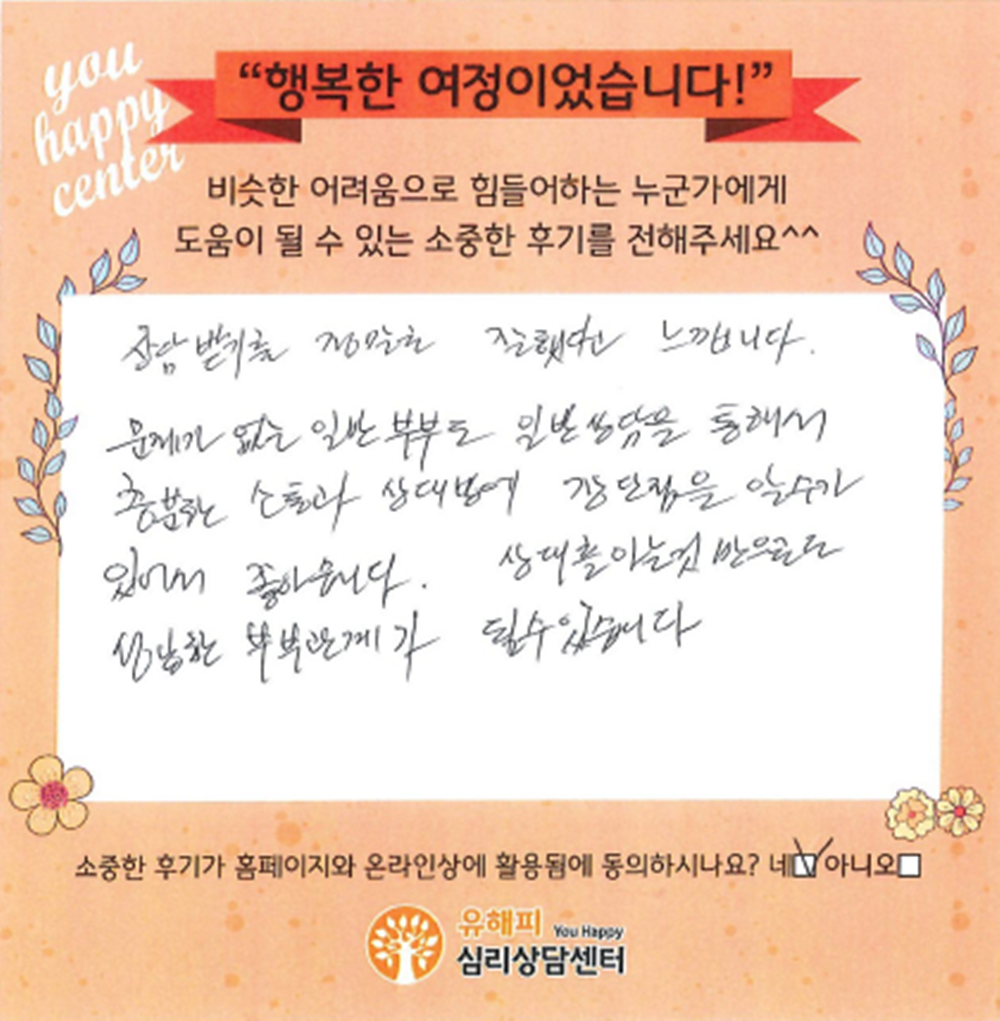 you
happy
center
“행복한 여정이었습니다!”
비슷한 어려움으로 힘들어하는 누군가에게
도움이 될 수 있는 소중한 후기를 전해주세요^^
상담받기를 정말로 잘했다고 느낍니다.
문제가 없는 일반 부부도 일반상담을 통해서
충분한 소통과 상대방에 장단점을 알수가
있어서 좋아습니다. 상대를 아는것 만으로도
부부관계가 될수있습니다
소중한 후기가 홈페이지와 온라인상에 활용됨에 동의하시나요? 네 아니오
유해피 You Happy
심리상담센터